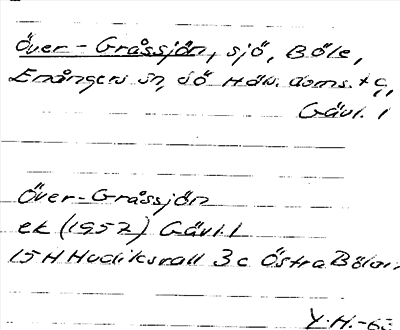 Över-Gråssjön, sjö, Böle,
Enångers sn, sö Häls. doms. t g,
Gävl. l
Över-Gråssjön
ek (1952) Gävl. l
15H Hudiksvall 3c Östra Bölan
Y.H.-63